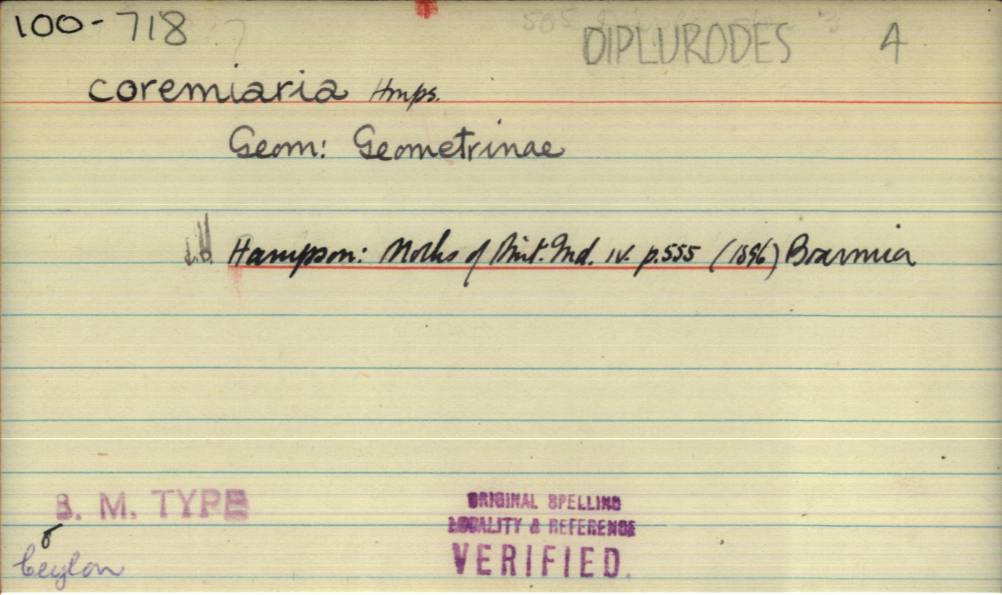 100-718
DIPLURODES A
coremiaria Hmps.
Geom: Geometrinae
Hampson: Moths of Brit. Ind. iv. p.555 (1896) Boarmia
B. M. TYPE
ORIGINAL SPELLING
LOCALITY & REFERENCE
VERIFIED.
Ceylon